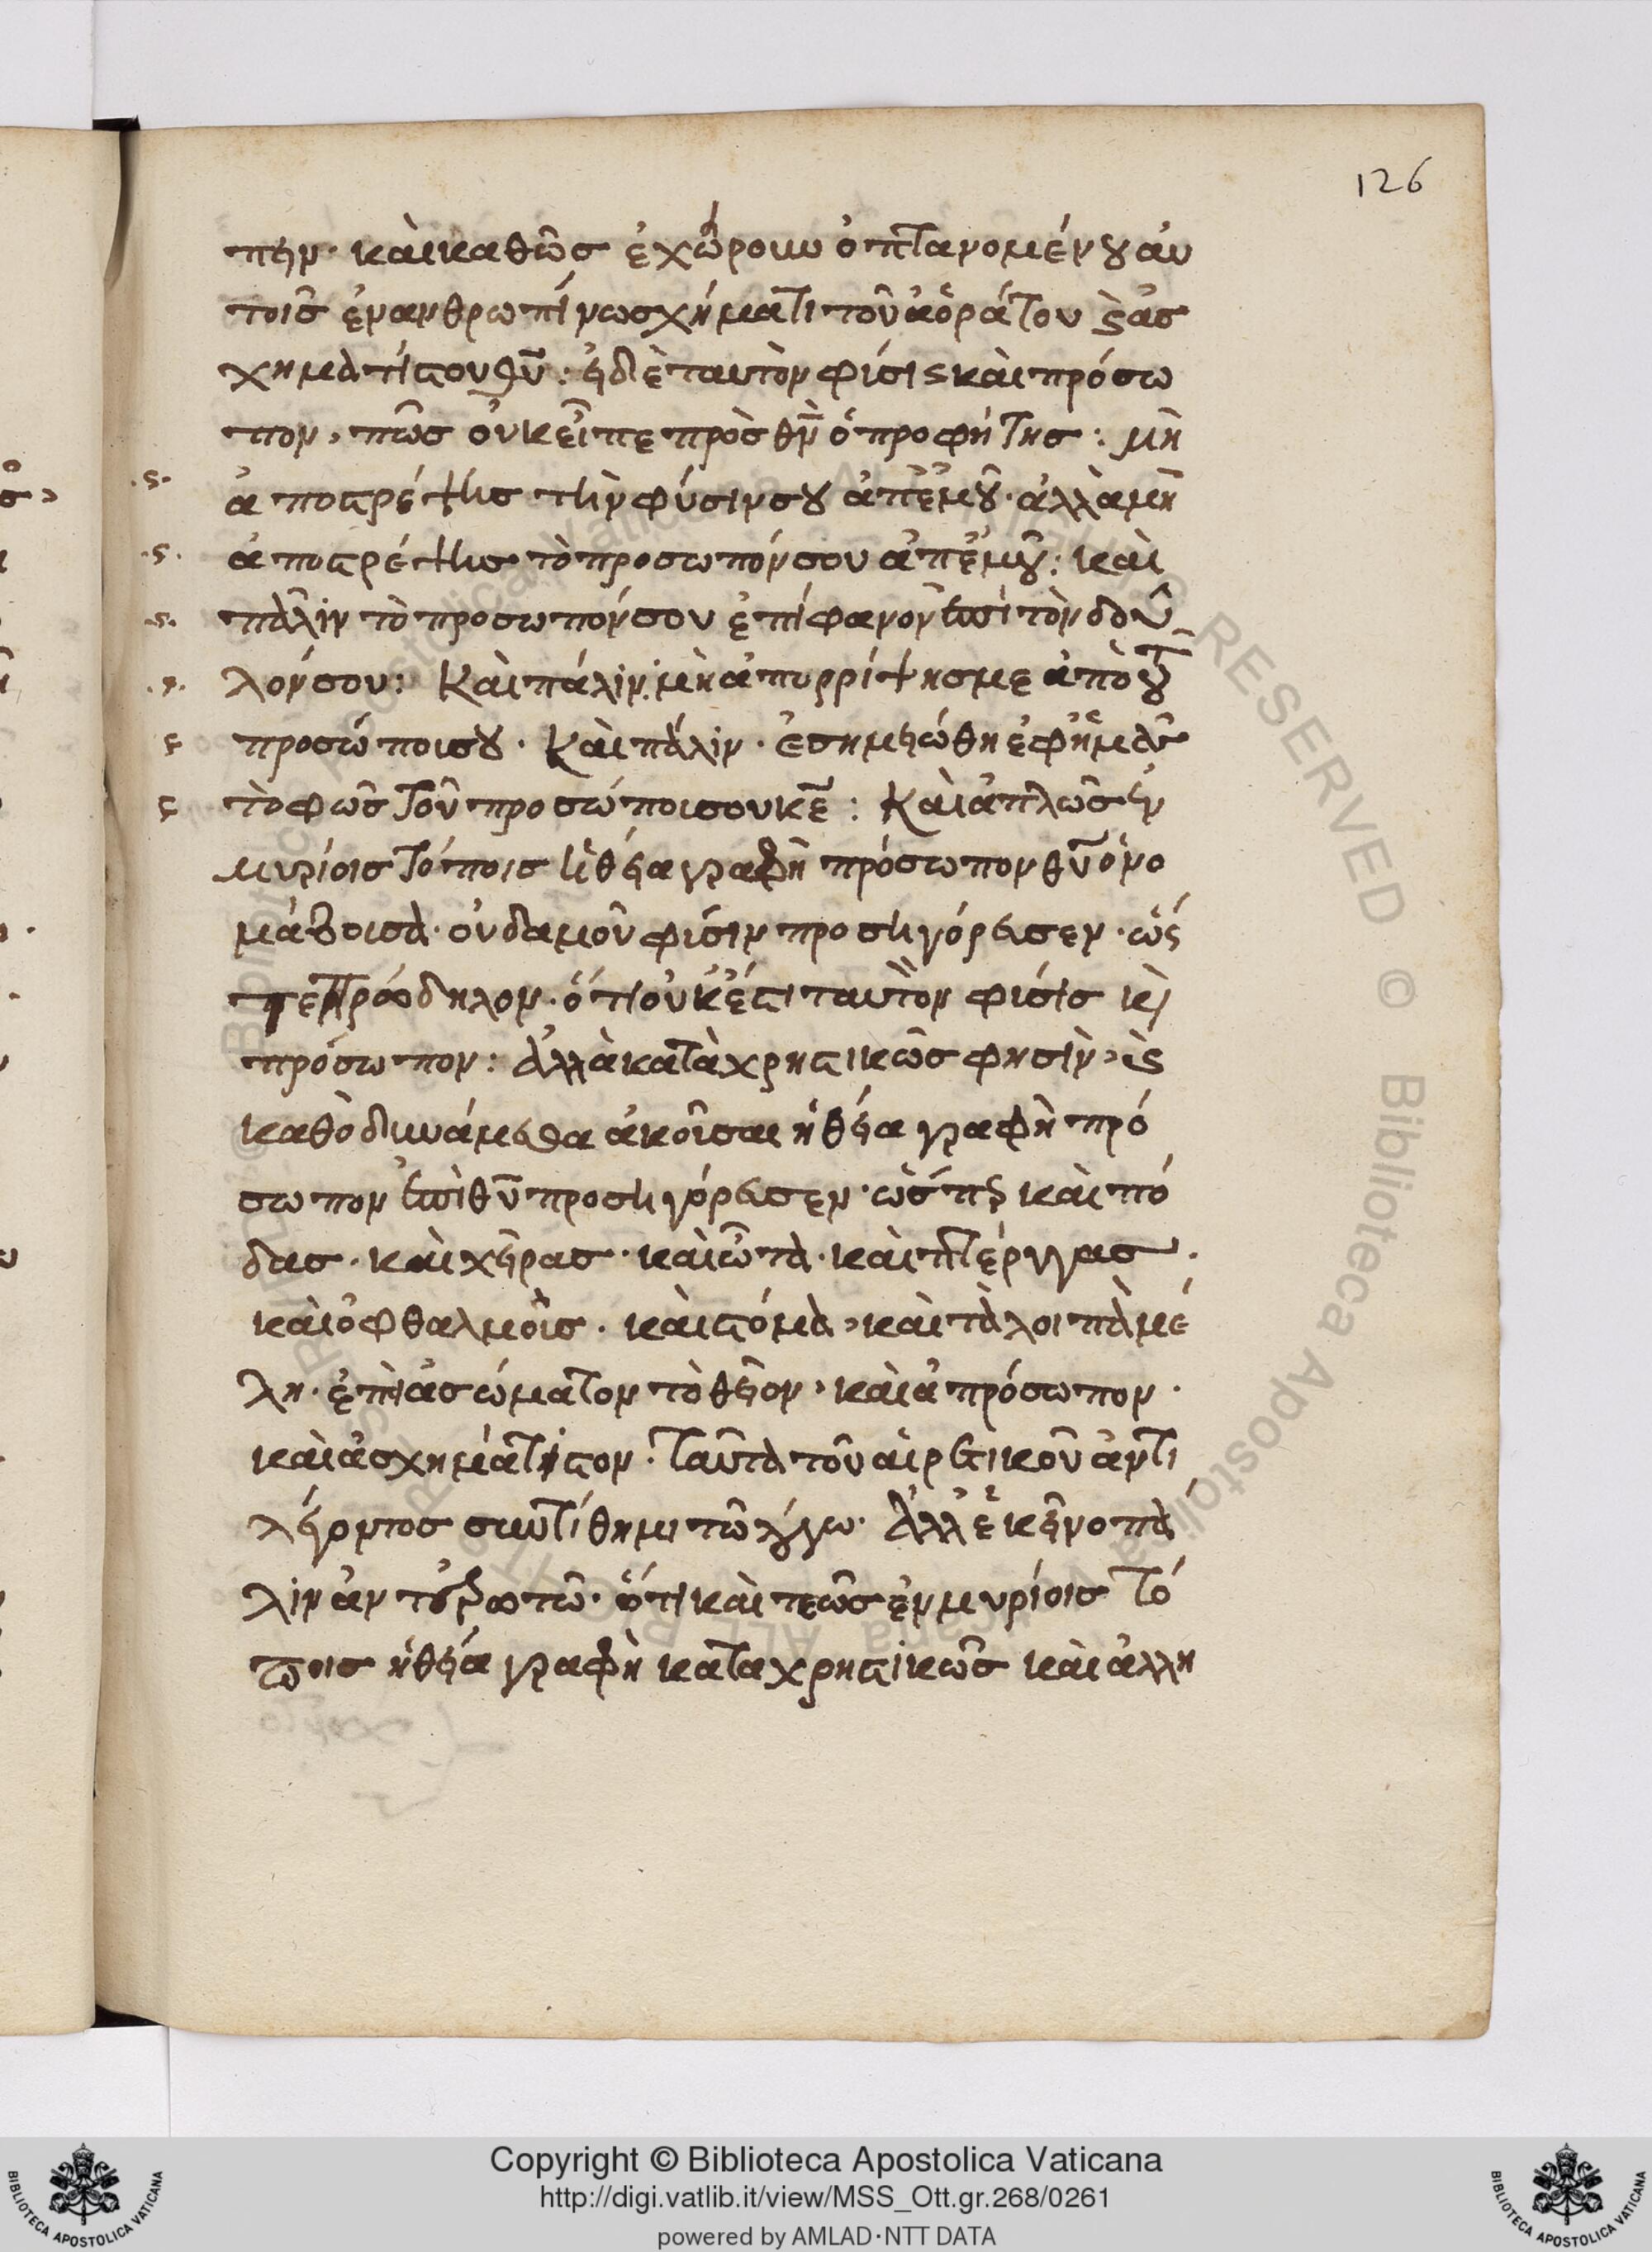 126
πην· καὶ καθὼς ἐχώρουν ὀπτανομένου αὐ
τοῖς ἐν ἀνθρωπίνω σχήματι τοῦ ἀοράτου καὶ ἀσ
χηματίστου θῦ: εἰ δὲ ταυτὸν φύσις καὶ πρόσω
πον, πῶς οὐκ εἶπε πρὸς θν̅ ὁ προφήτης: μὴ
ἀποστρέψης τὴν φύσιν σου ἀπ' ἐμοῦ· ἀλλὰ μὴ
ἀποστρέψης τὸ προσωπόν σου ἀπ' ἐμοῦ: καὶ
πάλιν τὸ προσωπόν σου ἐπίφανον ἐπὶ τὸν δοῦ
λόν σου: Καὶ πάλιν· μὴ ἀπορρίψης με ἀπὸ τοῦ
προσώπου σου· Καὶ πάλιν· ἐσημειώθη ἐφ' ἡμᾶς
τὸ φῶς τοῦ προσώπου σου κε̅: Καὶ ἁπλῶς ἐν
μυρίοις τόποις ἡ θεία γραφὴ πρόσωπον θυ̅ ὀνο
μάζουσα· οὐδαμοῦ φύσιν προσηγόρευσεν· ὥσ
τε πρόδηλον· ὅτι οὐκ ἔστι ταυτὸν φύσις κὶ
πρόσωπον: Ἀλλὰ καταχρηστικῶς φησὶν, καὶ
καθὸ δυνάμεθα ἀκοῦσαι ἡ θεία γραφὴ πρό
σωπον ἐπὶ θυ̅ προσηγόρευσεν· ὥσπερ καὶ πό
δας· καὶ χεῖρας· καὶ ὦτα· καὶ πτέρυγας·
καὶ ὀφθαλμοὺς· καὶ στόμα, καὶ τὰ λοιπὰ μέ
λη· ἐπεὶ ἀσώματον τὸ θεῖον, καὶ ἀπρόσωπον·
καὶ ἀσχημάτιστον· ταῦτα τοῦ αἱρετικοῦ ἀντι
λέγοντος συντίθημι τῶ λόγω· Ἀλλ' ἐκεῖνο πά
λιν ἀντερωτῶ· ὅτι καὶ πῶς ἐν μυρίοις τό
ποις ἡ θεία γραφὴ καταχρηστικῶς καὶ ἀλλη
Copyright © Biblioteca Apostolica Vaticana
http://digi.vatlib.it/view/MSS_Ott.gr.268/0261
powered by AMLAD·NTT DATA